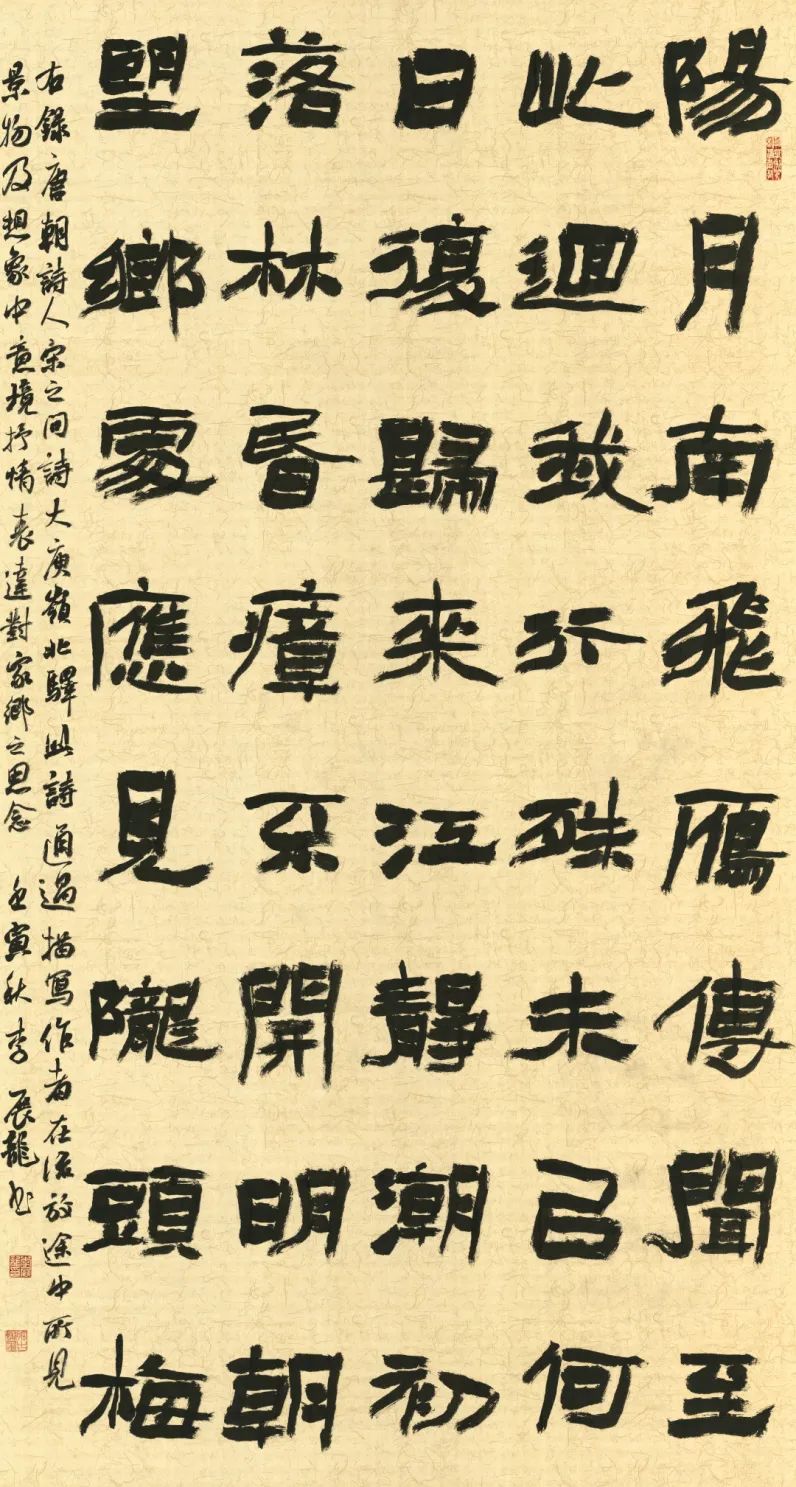 陽月南飛鴈傳聞至
此迴我行殊未已何
日復歸來江靜潮初
落林昏瘴不開明朝
望鄉處應見隴頭梅
右錄唐朝詩人宋之问詩大庾嶺北驛此詩通過描寫作者在流放途中所見
景物及想象中意境抒情表達對家鄉之思念 壬寅秋李展龍书